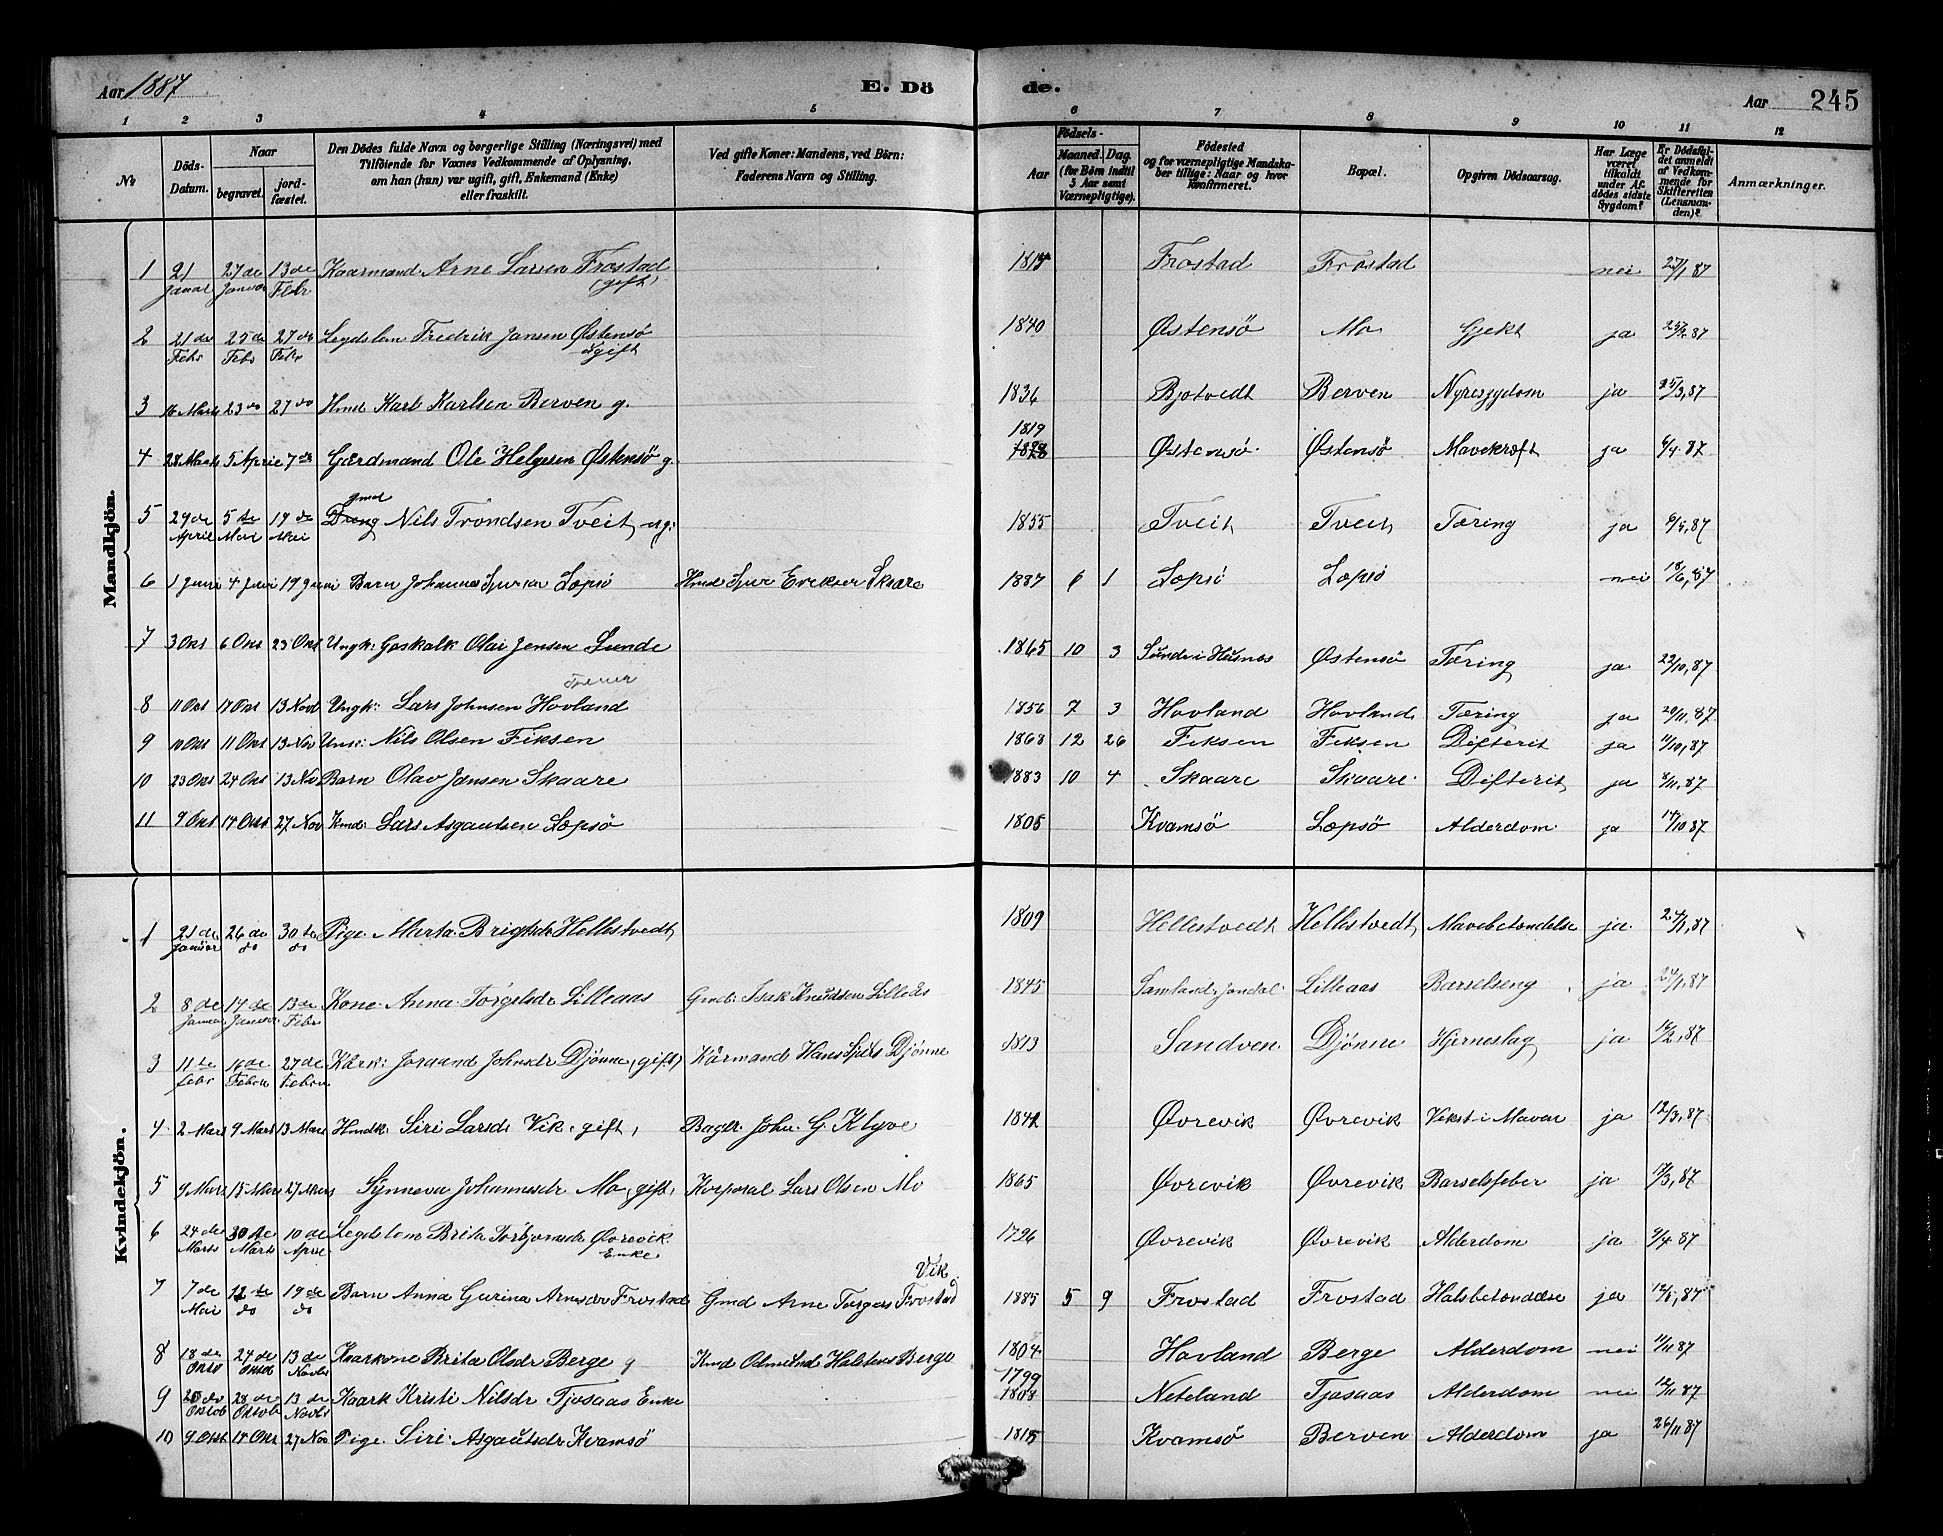 Aar 1887 E. Dö de. Aar 245
1 2 3 4 5 6 7 8 9 10 11 12
No Döds-Datum. Naar begravet. jord-fæstet. Den Dödes fulde Navn og borgerlige Stilling (Næringsvei) med Tilföiende for Voxnes Vedkommende af Oplysning, om han (hun) var ugift, gift, Enkemand (Enke) eller fraskilt. Ved gifte Koner: Mandens, ved Börn: Faderens Navn og Stilling. Födsels- Aar Maaned. Dag. (for Börn indtil 5 Aar samt Værnepligtige). Födested og for værnepligtige Mandskaber tillige: Naar og hvor Konfirmeret. Bopæl. Opgiven Dödsaarsag. Har Læge været tilkaldt under Afdödes sidste Sygdom? Er Dödsfaldet anmeldt af Vedkommende for Skifteretten (Lensmanden)? Anmærkninger.
Mandkjön.
1 21 Januar 27 de Januar 13 de Febr Kaarmand Arne Larsen Frostad (gift) 1814 Frostad Frostad nei 27/1 87
2 21 de Febr 25 de Febr 27 de Febr Legdslem Fredrik Jansen Østensö gift 1840 Østensö Mo Gjekt ja 25/2 87
3 16 Marts 23 do 27 do Hmd Karl Karlsen Berven g. 1836 Bjotvedt Berven Nyresygdom ja 25/3, 87
4 28 Marts 5 April 7 de Gardmand Ole Helgesen Østensö g. 1819 1828 Østensö Østensö Mavekræft ja 6/4 87
5 29 de April 5 te Mai 19 de Mai Dreng gmd Nils Trondsen Tveit ug: 1855 Tveit Tveit Tæring ja 6/5, 87
6 1 Juni 4 Juni 19 Juni Barn Johannes Sjursen Lopsö Hmd Sjur Eriksen Skaare 1887 6 1 Lopsö Lopsö nei 18/6, 87
7 3 Okt 6 Okt 23 Okt Ungk: Goskalk Olai Jensen Sunde 1865 10 3 Sunde i Husnes Østensö Tæring ja 22/10, 87
8 11 Okt 17 Okt 13 Novb Ungk: Lars Johnsen Hovland 1856 7 3 Hovland Hovland Tæring ja 20/11, 87
9 10 Okt 11 Okt 13 Nov Unk: Nils Olsen Fiksen 1868 12 26 Fiksen Fiksen Difterit ja 11/10, 87
10 23 Okt 24 Okt 13 Nov Barn Olav Jansen Skaare 1883 10 4 Skaare Skaare Difterit ja 8/11, 87
11 9 Okt 14 Okt 27 Nov Kmd: Lars Asgautsen Lopsö 1805 Kvamsö Lopsö Alderdom ja 14/10 87
Kvindekjön.
1 21 de Januar 26 de do 30 te do Pige Marta Brigtsdr Hellestvedt 1809 Hellestvedt Hellestvedt Mavebetændelse ja 24/1, 87
2 8 de Januar 14 de Januar 13 de Febr Kone Anna Torgelsdr Lilleaas Gmd: Isak Knudsen Lilleås 1845 Samland, Jondal Lilleaas Barselseng ja 24/1, 87
3 11 te febr 16 de Februar 27 de Febru Kårk: Joraand Johnsdr Djönne (gift) Kårmand Hans Sjurs Djönne 1813 Sandven Djönne Hjerneslag ja 16/2, 87
4 2 Mars 9 Mars 13 Mars Hmdk: Siri Larsdr Vik gift, Bager John G. Klyve 1842 Øvrevik Øvrevik Vekst i Maven ja 12/3, 87
5 9 Mars 15 Mars 27 Mars Synneva Johannesdr Mo, gift, Korporal Lars Olsen Mo 1865 Øvrevik Øvrevik Barselsfeber ja 17/3, 87
6 24 de Marts 30 de Marts 10 de April Legdslem Brita Torbjornsdr Øvrevik Enke 1796 Øvrevik Øvrevik Alderdom ja 9/4 87
7 7 de Mai 12 te do 19 de do Barn Anna Gurina Arnesdr Frostad Gmd Arne Torgers Frostad Vik 1885 5 9 Frostad Frostad Halsbetændelse ja 12/5, 87
8 18 de Oktb 24 de Oktob 13 de Novbr Kaarkone Brita Olsdr Berge g Kmd Odmund Halstens Berge 1804 Hovland Berge Alderdom nei 11/11 87
9 20 de Oktob 28 de Oktob 13 de Novbr Kaark Kristi Nilsdr Tjosaas Enke 1799 1808 Neteland Tjosaas Alderdom nei 12/11 87
10 9 Okt 14 Okt 27 Nov Pige Siri Asgautsdr Kvamsö 1815 Kvamsö Berven Alderdom ja 26/11 87